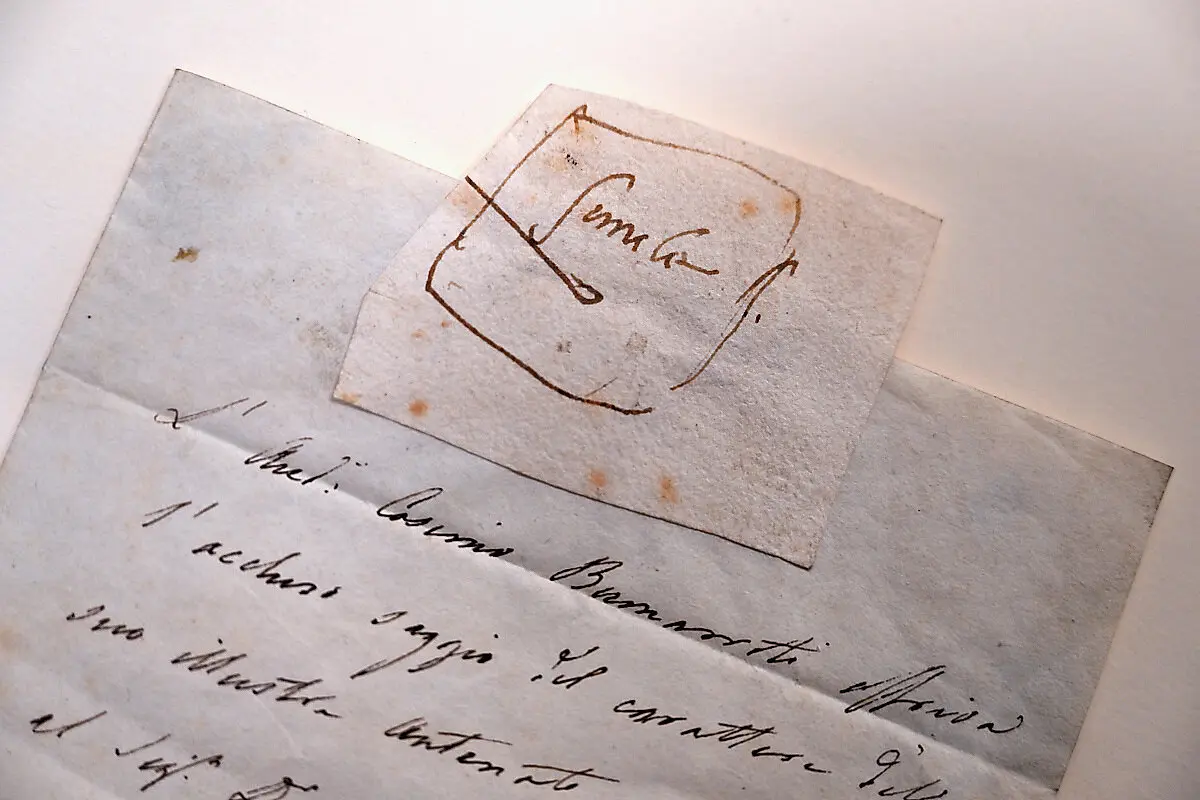 simile
L' Aud.r Cosimo Buonarroti offriva
l'accluso saggio del carattere del
suo illustre antenato
al Sig.r